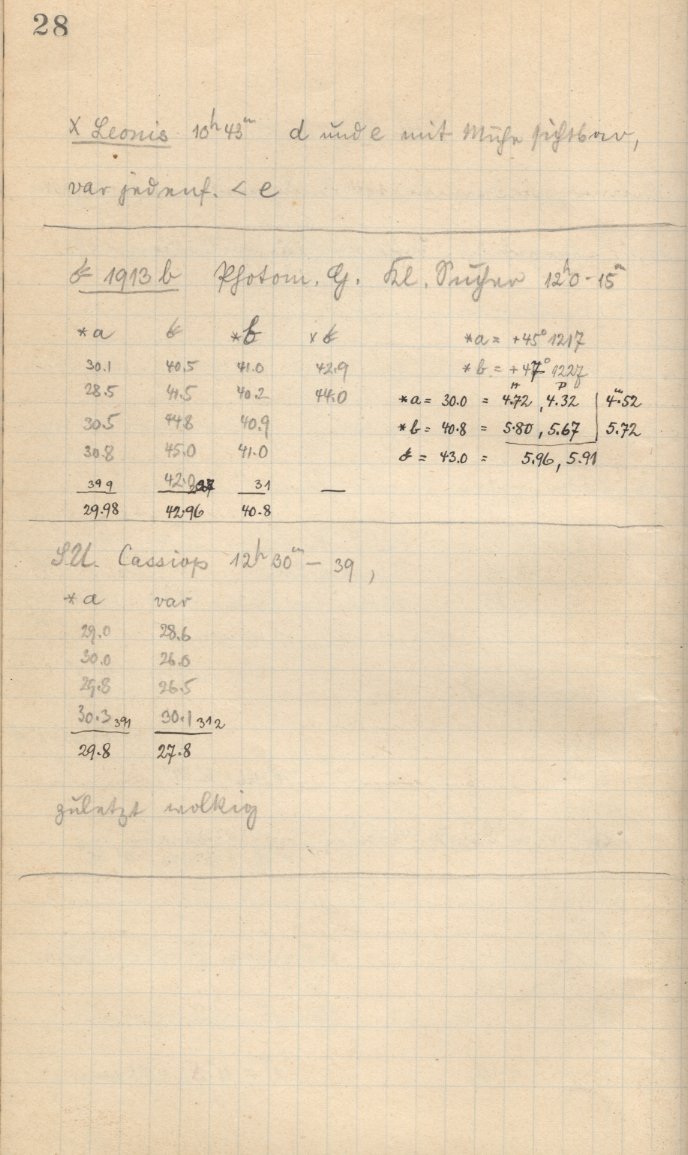 28
X Leonis 10h 43m d und e mit Mühe sichtbar,
var jedenf. < e
☄ 1913 b Photom. G. Kl. Sucher 12h 0 - 15m
*a ☄ *b x ☄ *a = +45° 1217
30.1 40.5 41.0 42.9 *b = +47° 1227
28.5 41.5 40.2 44.0 *a = 30.0 = 4.72, 4.32 | 4m.52
30.5 44.8 40.9 *b = 40.8 = 5.80, 5.67 | 5.72
30.8 45.0 41.0 ☄ = 43.0 = 5.96, 5.91
39 9 42.0 31 —
29.98 42.96 40.8
S.U. Cassiop 12h 30m – 39,
*a var
29.0 28.6
30.0 26.0
29.8 26.5
30.3 391 30.1 312
29.8 27.8
zuletzt wolkig